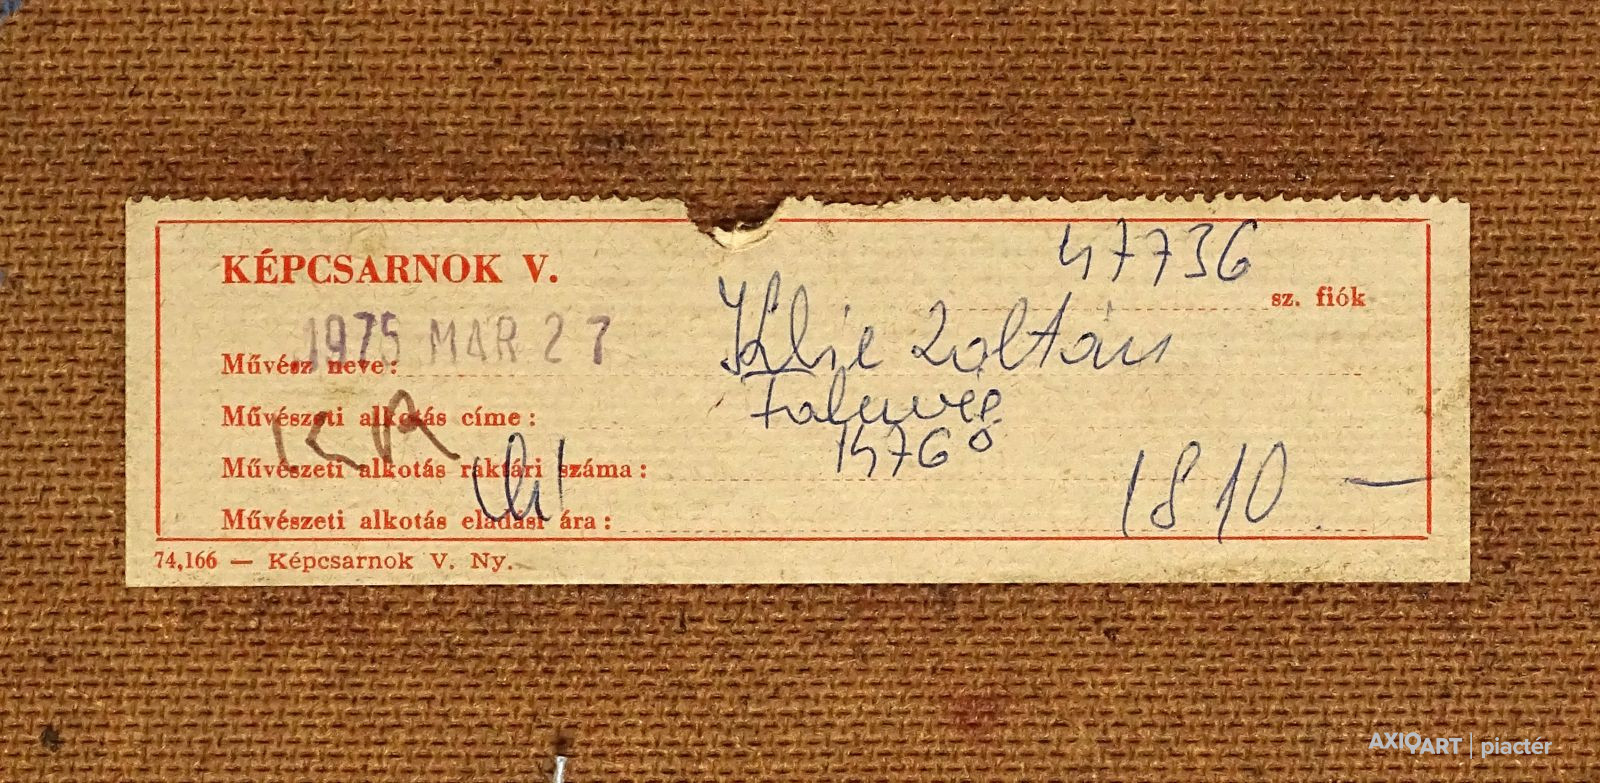 47736
KÉPCSARNOK V.
sz. fiók
1975 MAR 27
Művész neve: Klie Zoltán
Művészeti alkotás címe: Faluvég
KA
Művészeti alkotás raktári száma:
Művészeti alkotás eladási ára: 1810.—
74,166 — Képcsarnok V. Ny.
AXIOART | piactér